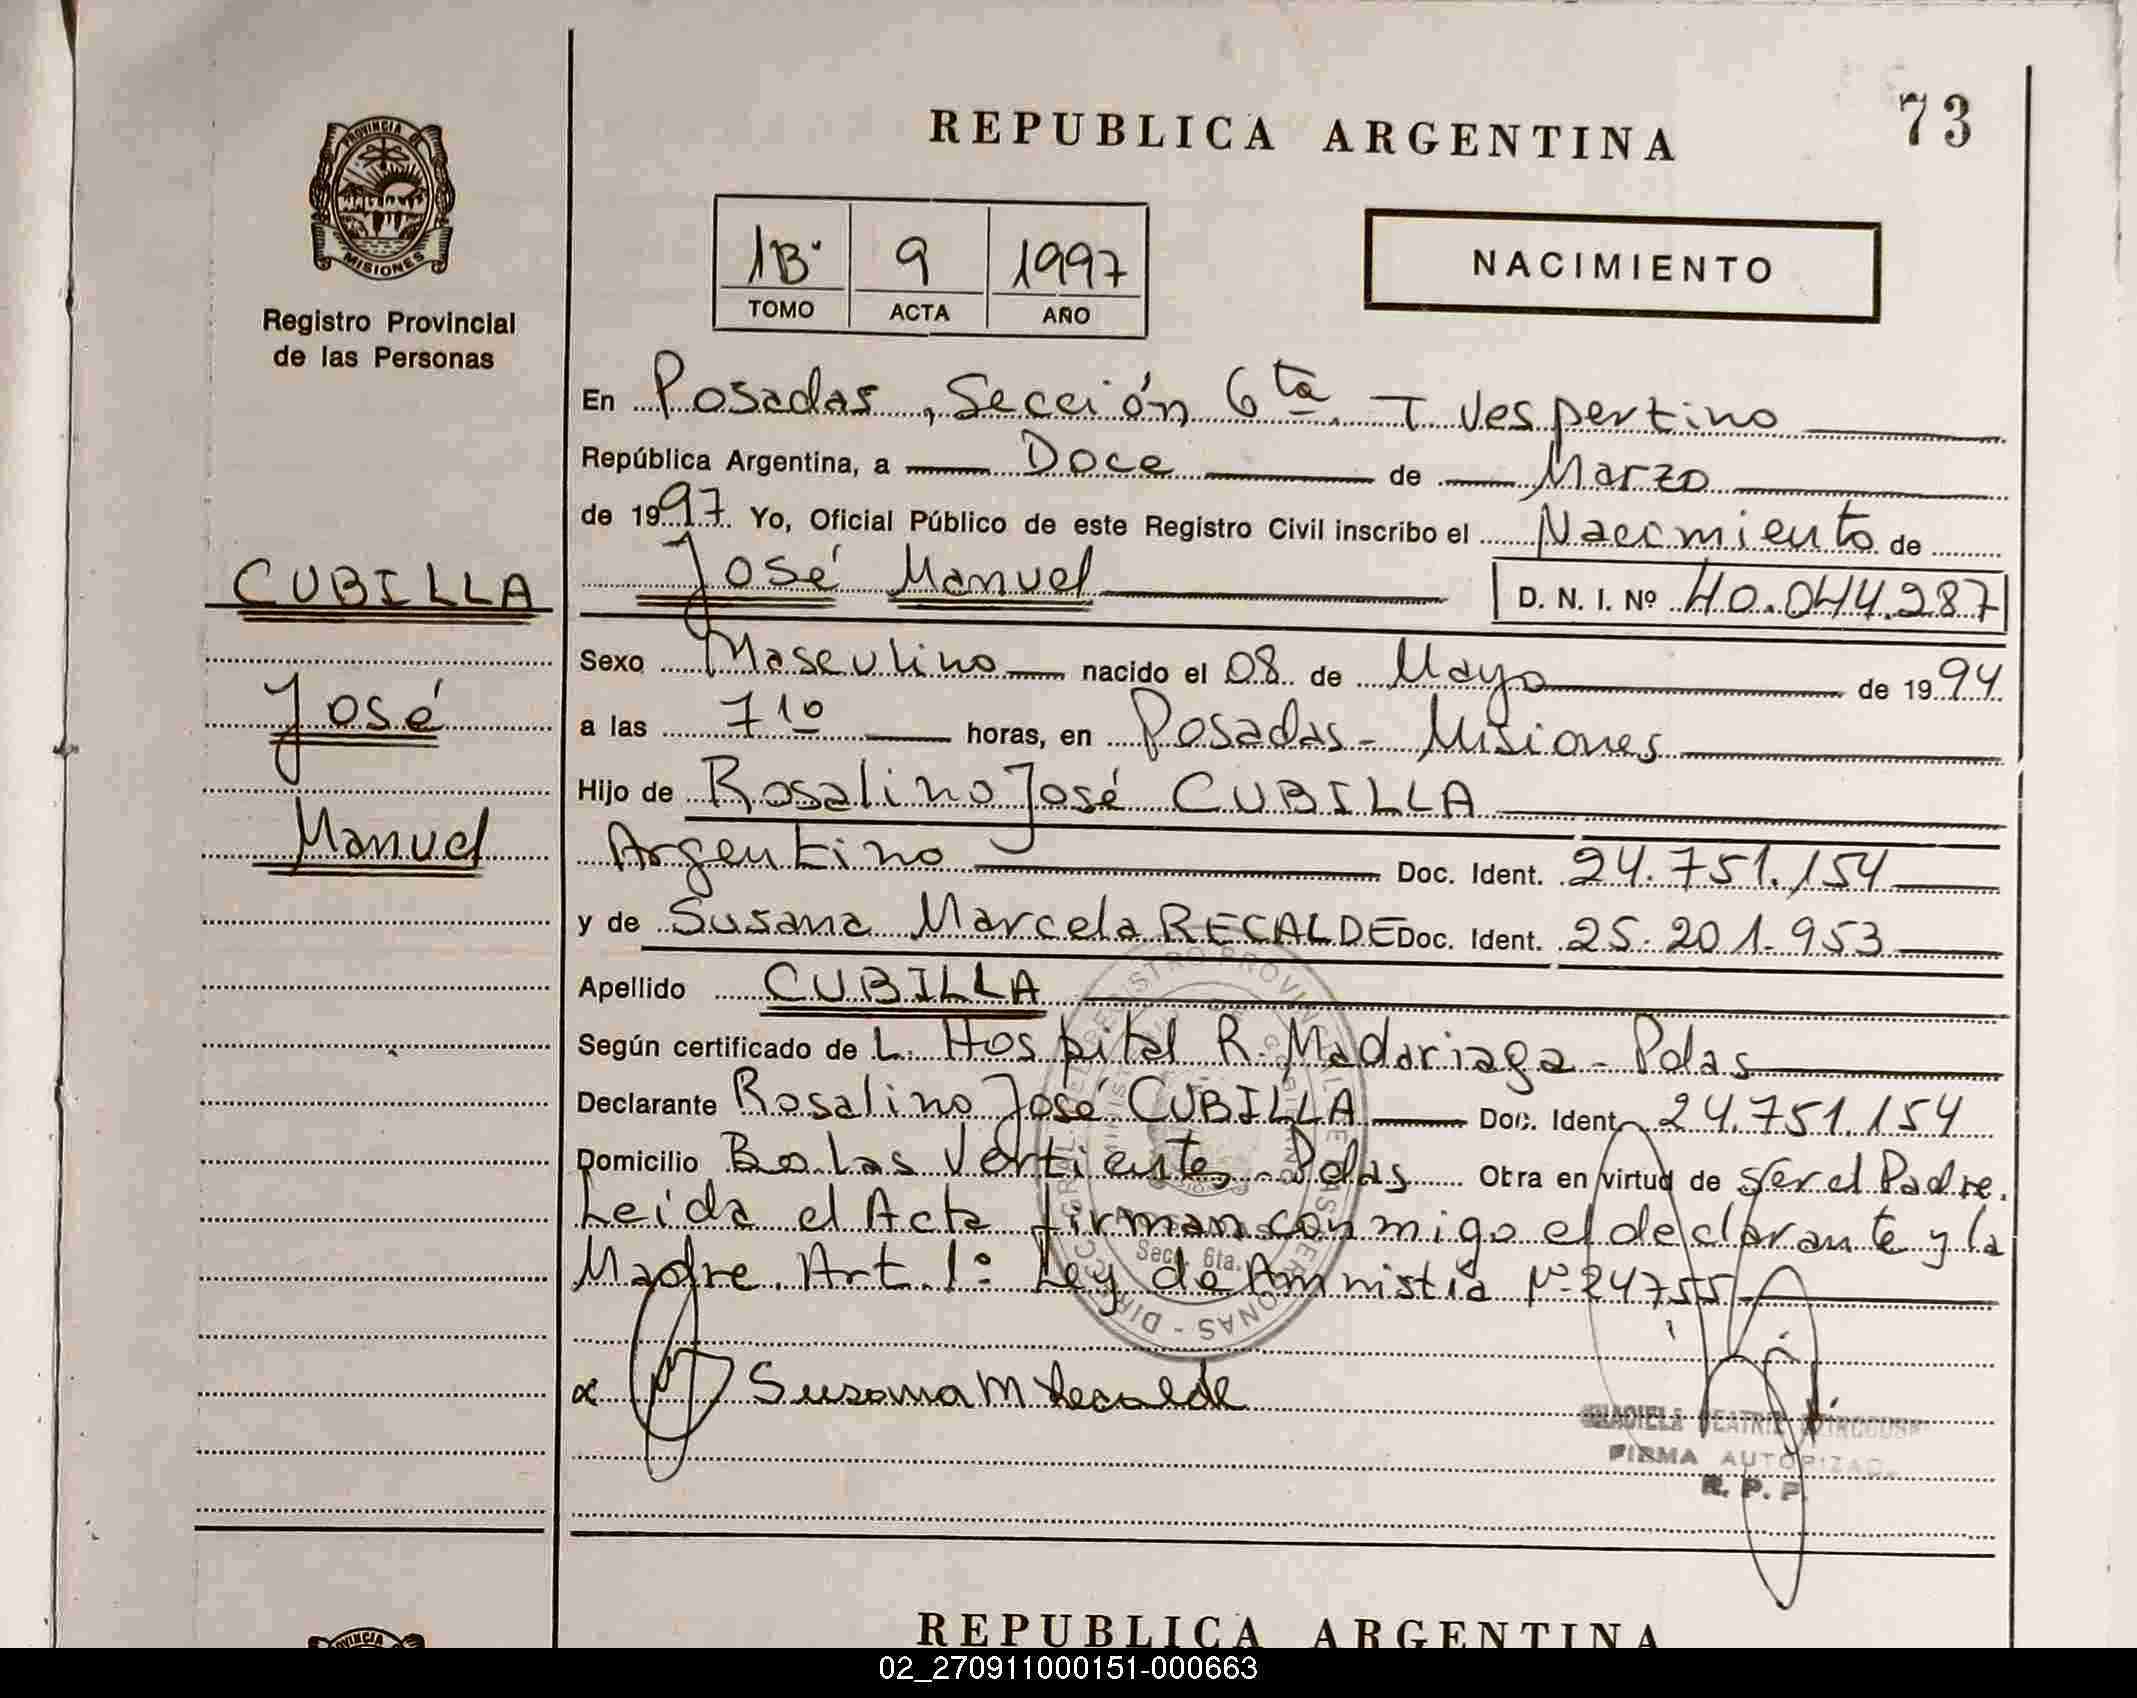 REPUBLICA ARGENTINA
73
PROVINCIA DE
MISIONES
Registro Provincial
de las Personas
1B 9 1997
TOMO ACTA AÑO
NACIMIENTO
En Posadas, Sección 6ta. T Vespertino
República Argentina, a Doce de Marzo
de 1997. Yo, Oficial Público de este Registro Civil inscribo el Nacimiento de
CUBILLA
José Manuel D. N. I. Nº 40.044.287
Sexo Masculino nacido el 08 de Mayo de 1994
José
a las 7 10 horas, en Posadas - Misiones
Hijo de Rosalino José CUBILLA
Manuel
Argentino Doc. Ident. 24.751.154
y de Susana Marcela RECALDE Doc. Ident. 25.201.953
Apellido CUBILLA
Según certificado de L. Hospital R. Madariaga - Pdas
Declarante Rosalino José CUBILLA Doc. Ident. 24.751.154
Domicilio Bo. Las Vertientes - Pdas Otra en virtud de Ser el Padre.
Leida el Acta firman conmigo el declarante y la
Madre. Art. 1º Ley de Amnistia Nº 24755
Secc. 6ta.
Susana M Recalde
BEATRIZ
FIRMA AUTORIZAD
R. P. P.
REPUBLICA ARGENTINA
02_270911000151-000663